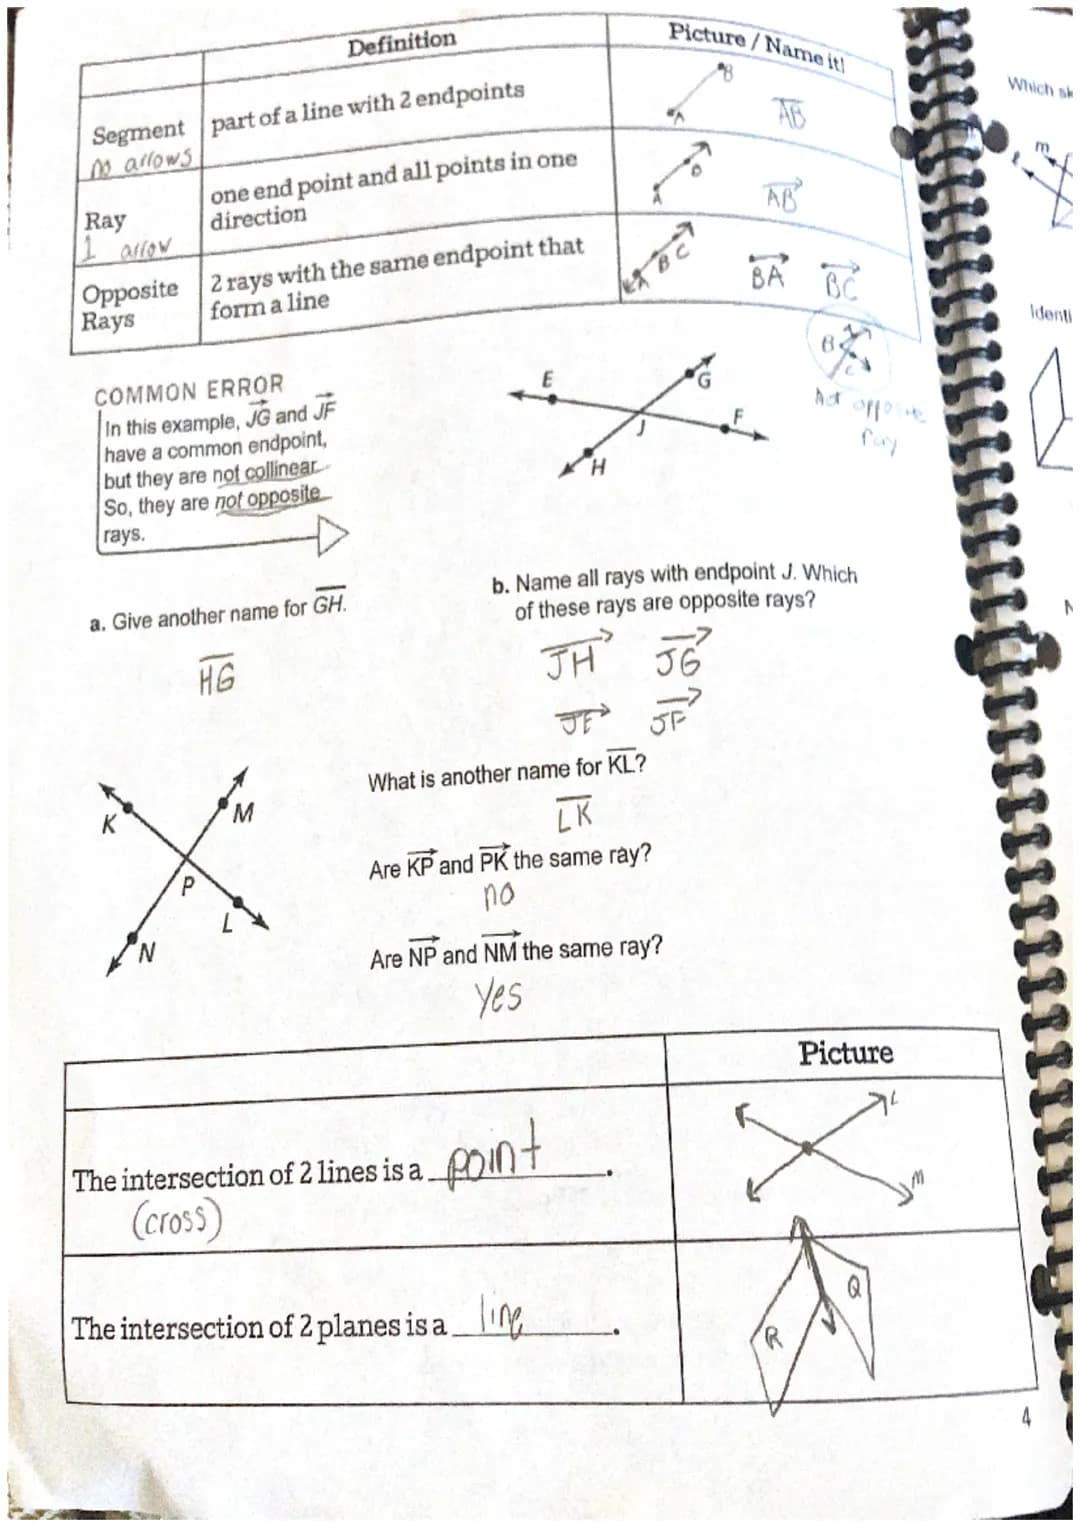 Definition
Picture / Name it!
Segment
no arrows
part of a line with 2 endpoints
A
B
AB
Ray
1 arrow
one end point and all points in one
direction
A
AB
Opposite
Rays
2 rays with the same endpoint that
form a line
A B C
BA BC
B
C
Not opposite
ray
COMMON ERROR
In this example, JG and JF
have a common endpoint,
but they are not collinear.
So, they are not opposite
rays.
E
G
J
F
H
a. Give another name for GH.
HG
b. Name all rays with endpoint J. Which
of these rays are opposite rays?
JH JG
JE JF
K
M
P
L
N
What is another name for KL?
LK
Are KP and PK the same ray?
no
Are NP and NM the same ray?
yes
Picture
The intersection of 2 lines is a point.
(cross)
L
M
The intersection of 2 planes is a line.
R
Q
4
Which sk
m
l
Identi